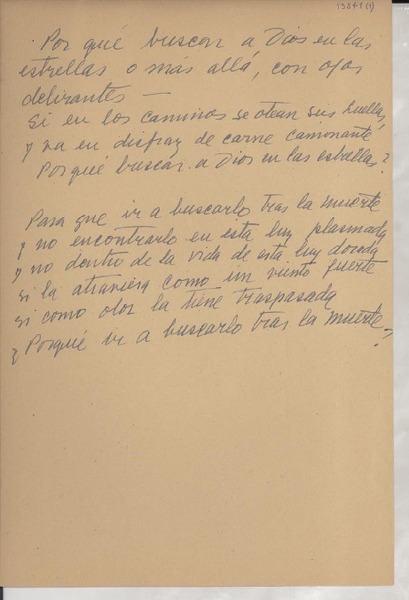 13843 (1)
Por qué buscar a Dios en las
estrellas o más allá, con ojos
delirantes —
Si en los caminos se otean sus huellas,
y va en disfraz de carne caminante
Porqué buscar a Dios en las estrellas?
Para que ir a buscarlo tras la muerte
y no encontrarlo en esta luz plasmada
y no dentro de la vida de esta luz dorada
si la atraviesa como un viento fuerte
si como olor la tiene traspasada
¿Porqué ir a buscarlo tras la muerte?